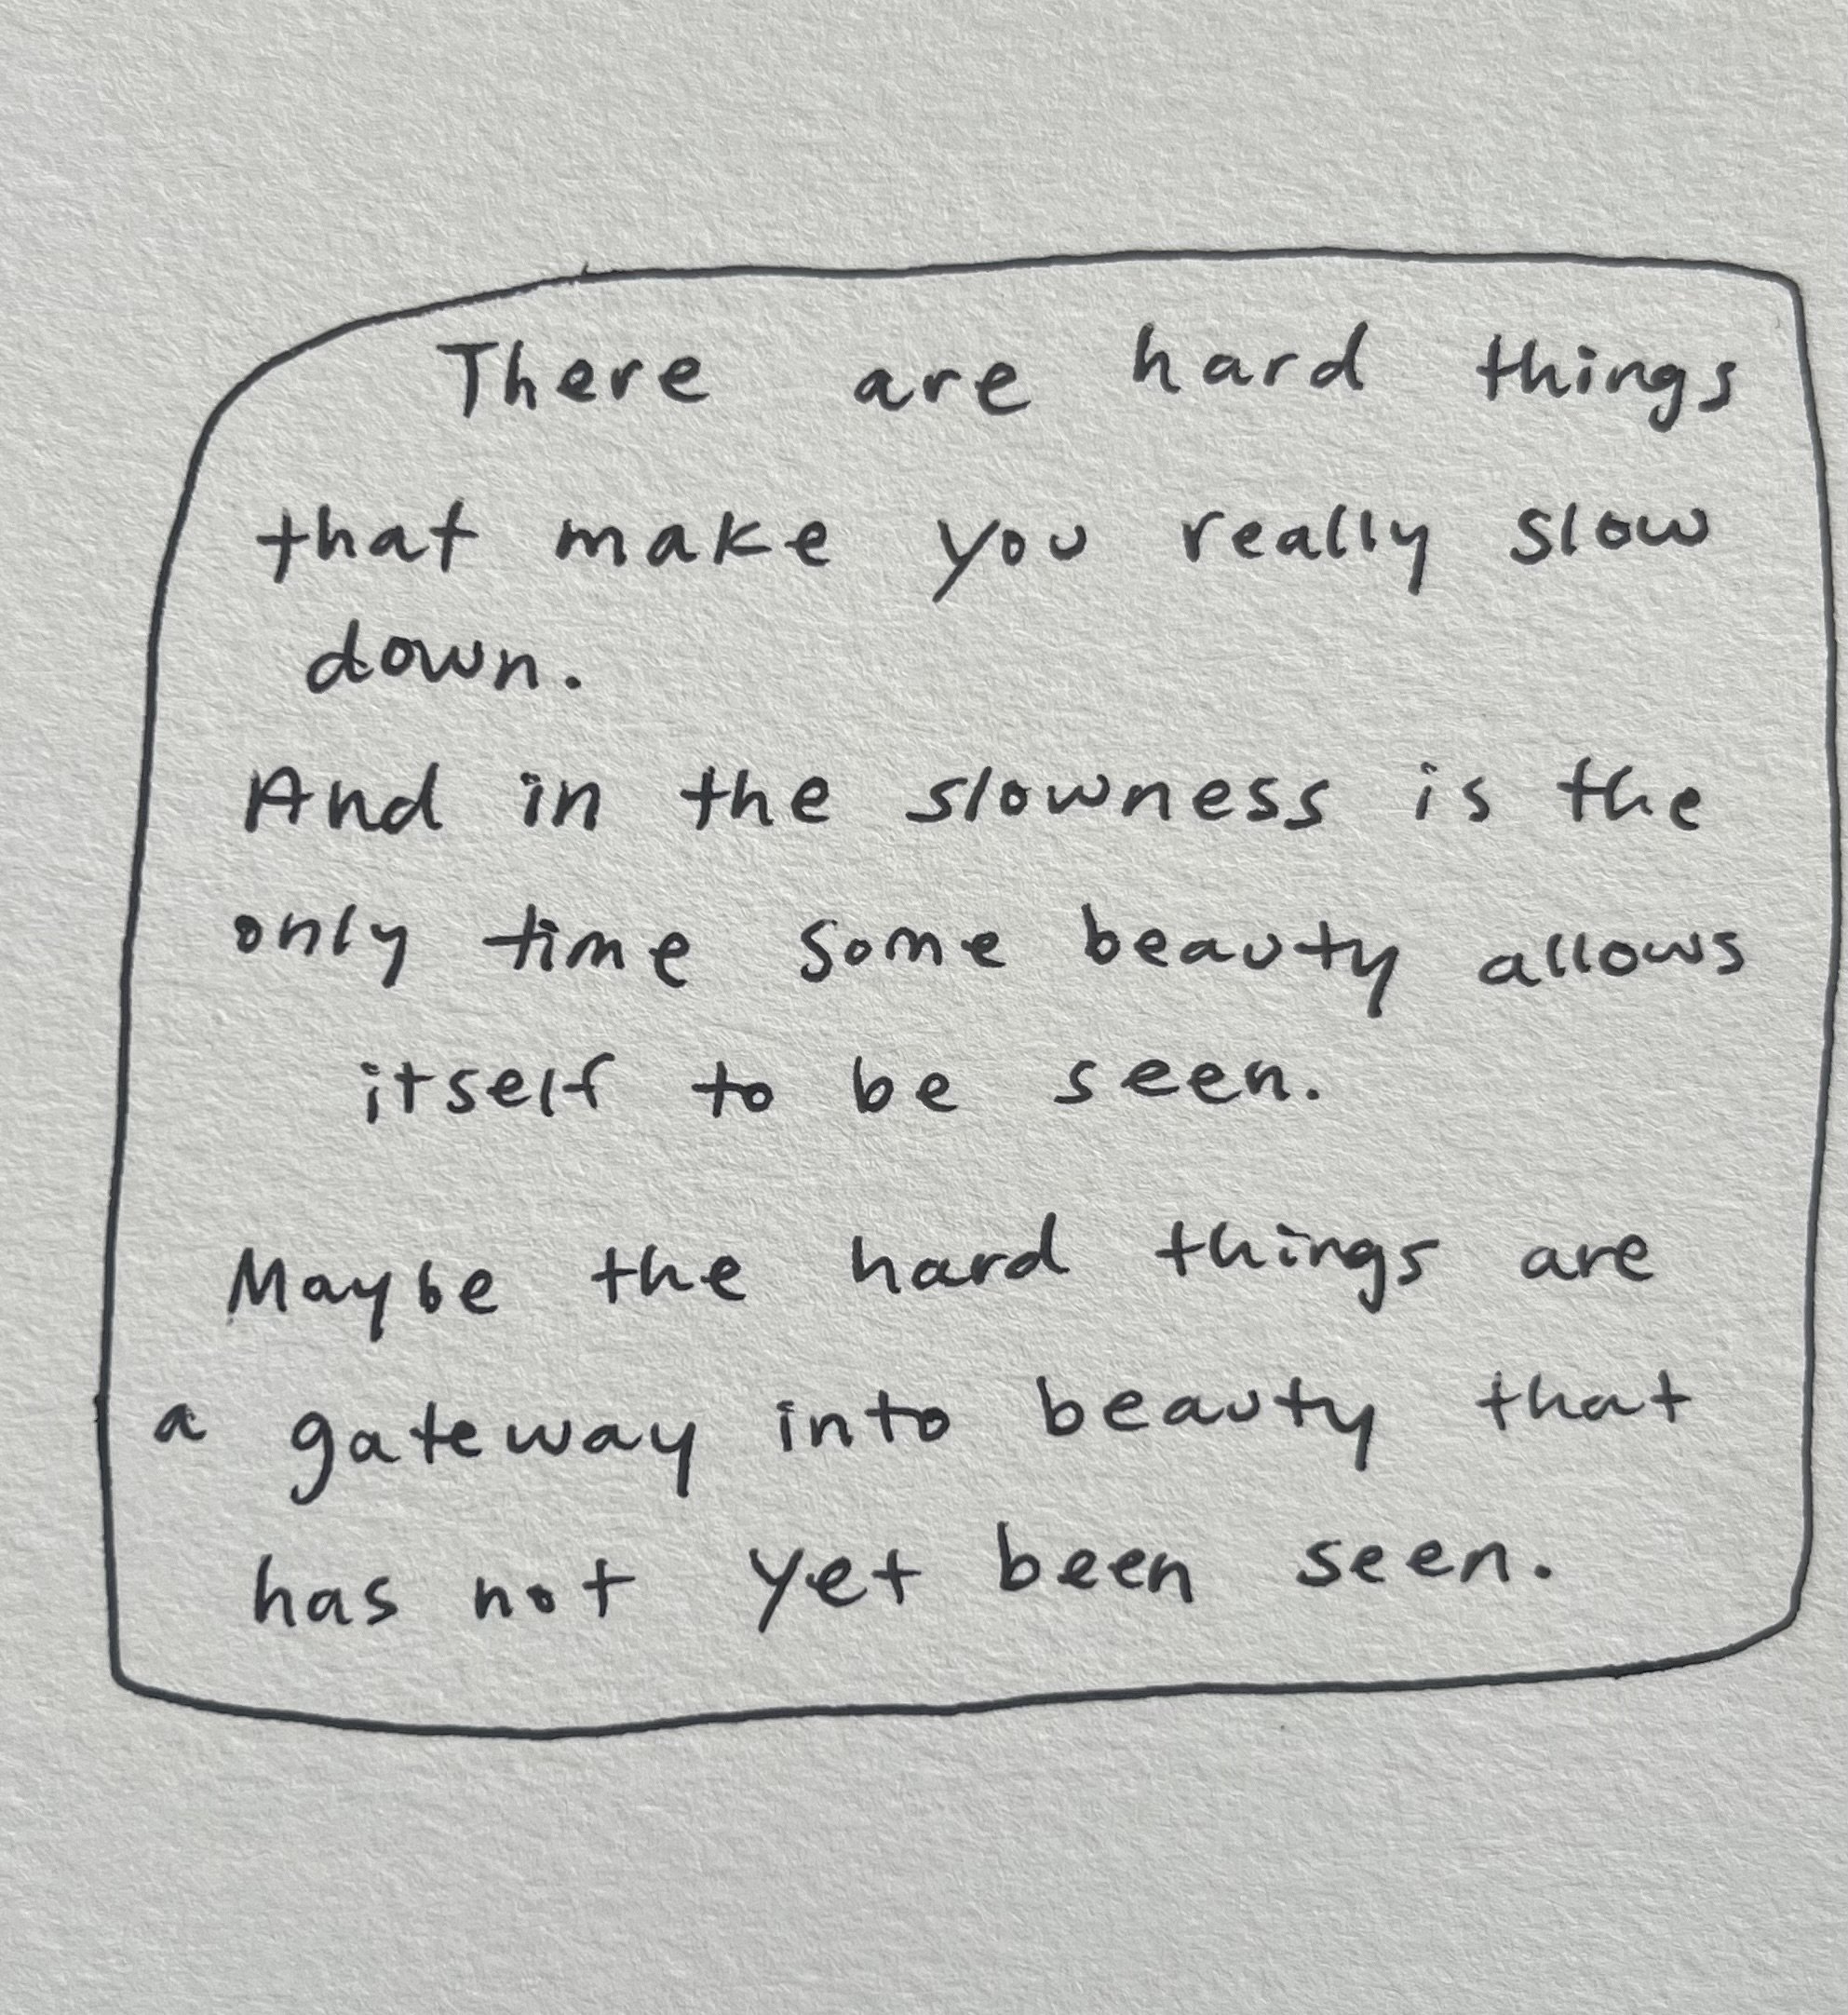 There are hard things
that make you really slow
down.
And in the slowness is the
only time some beauty allows
itself to be seen.
Maybe the hard things are
a gateway into beauty that
has not yet been seen.